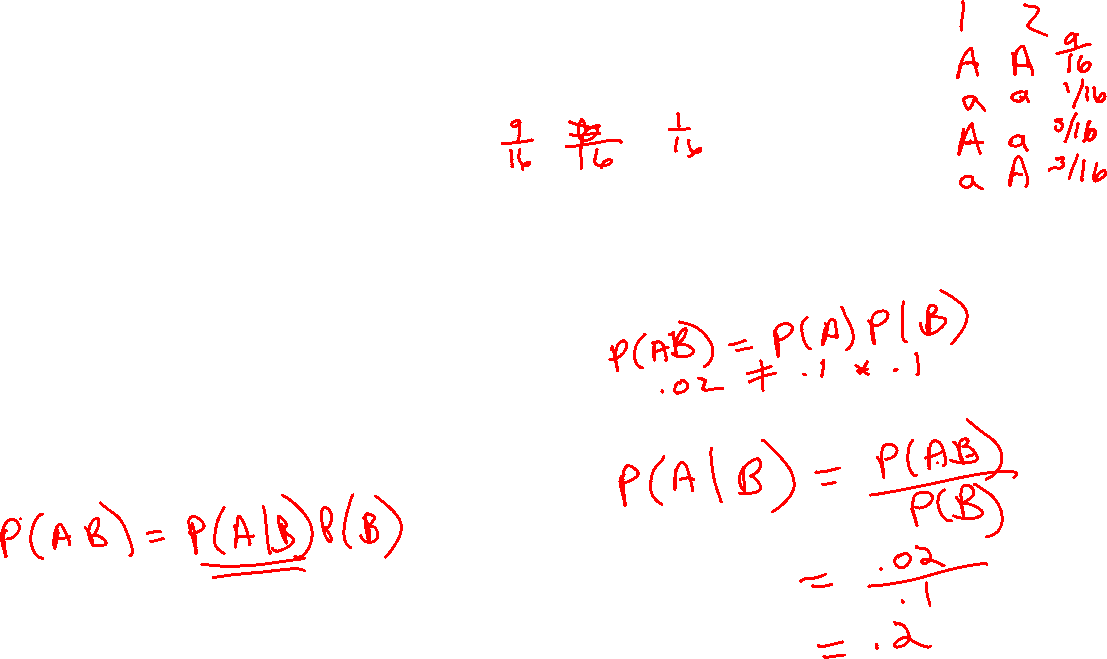 1 2
A A 9/16
a a 1/16
A a 3/16
a A 3/16
9/16 /16 1/16
P(AB) = P(A) P(B)
.02 ≠ .1 * .1
P(A|B) = P(AB)/P(B)
= .02/.1
= .2
P(AB) = P(A|B)P(B)